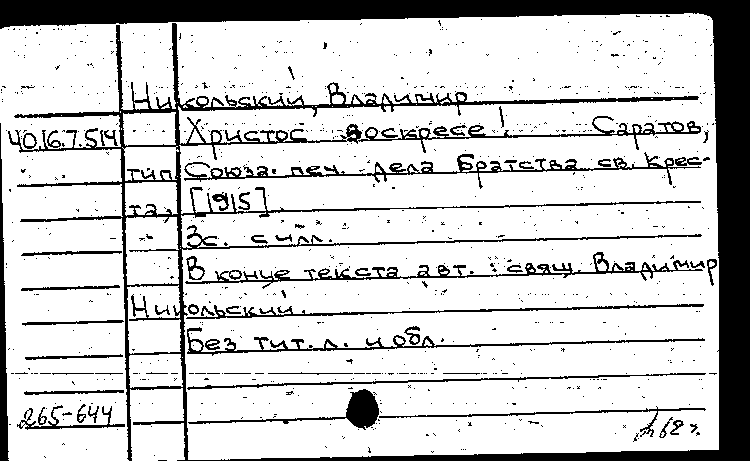 Никольский, Владимир
40.16.7.514 Христос воскресе! Саратов,
тип. Союза печ. дела Братства св. Крес-
та, [1915]
3с. с илл.
В конце текста авт.: свящ. Владимир
Никольский.
Без тит. л. и обл.
265-644
62 г.